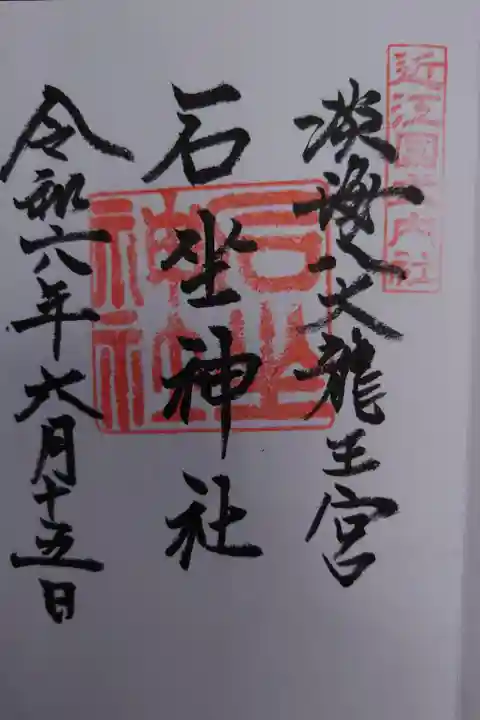 近江國式内社
淡海八大龍王宮
石坐神社
石坐神社
令和六年六月十五日